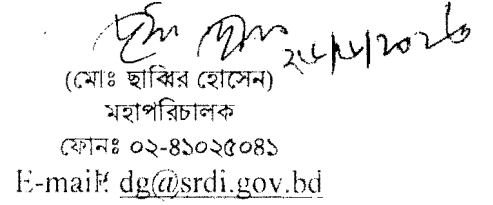 (মোঃ ছাব্বির হোসেন)
মহাপরিচালক
ফোনঃ ০২-৪১০২৫০৪১
E-mail: dg@srdi.gov.bd